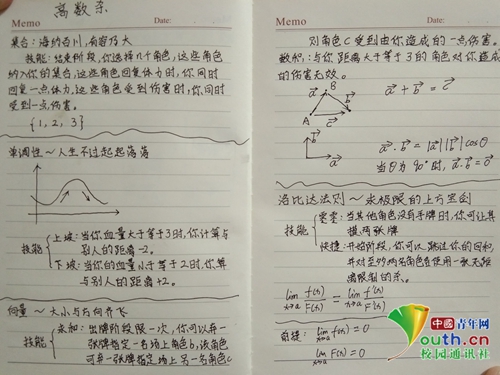 离数杀
Memo
Date:
集合:海纳百川,有容乃大
技能:结束阶段,你选择n个角色,这些角色
纳入你的集合,这些角色回复体力时,你同时
回复一点体力,这些角色受到伤害时,你同时
受到一点伤害。
{1, 2, 3}
单调性~人生不过起起落落
技能
上坡:当你血量大于等于3时,你计算与
别人的距离-2。
下坡:当你的血量小于等于2时,你算
与别人的距离+2。
向量~大小与方向齐飞
技能
求和:出牌阶段限一次,你可以弃一
张牌指定一名场上角色b,该角色
可弃一张牌指定场上另一名角色c
Memo
Date:
则角色c受到由你造成的一点伤害。
数积:与你距离大于等于3的角色对你造成
的伤害无效。
a b c
A B
a + b = c
b
a
a · b = |a| |b| cosθ
当θ为90°时, a · b = 0
洛比达法则~求极限的上方宝剑
技能
当其他角色没有手牌时,你可让其
摸两张牌
快捷:开始阶段,你可以跳过你的回合,
并对至多两名角色各使用一张无距
离限制的杀。
lim x→a f(x)/F(x) = lim x→a f'(x)/F'(x)
前提: lim x→a f(x) = 0
lim x→a F(x) = 0
中國青年网
youth.cn
校园通讯社